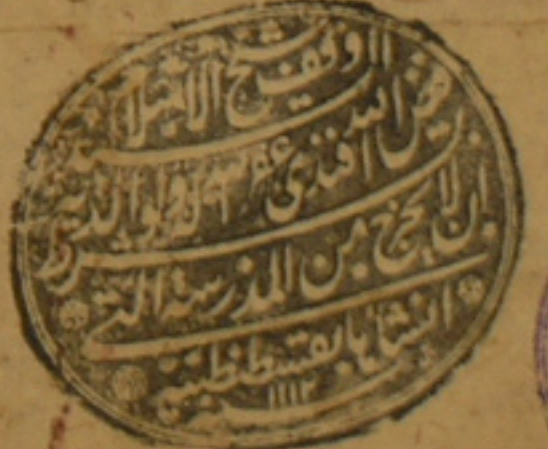 وقف شيخ الاسلام
فيض الله
افندي غفر له ولوالديه بشرط
ان لا يخرج من المدرسة التي
انشأها بقسطنطينية
١١١٢